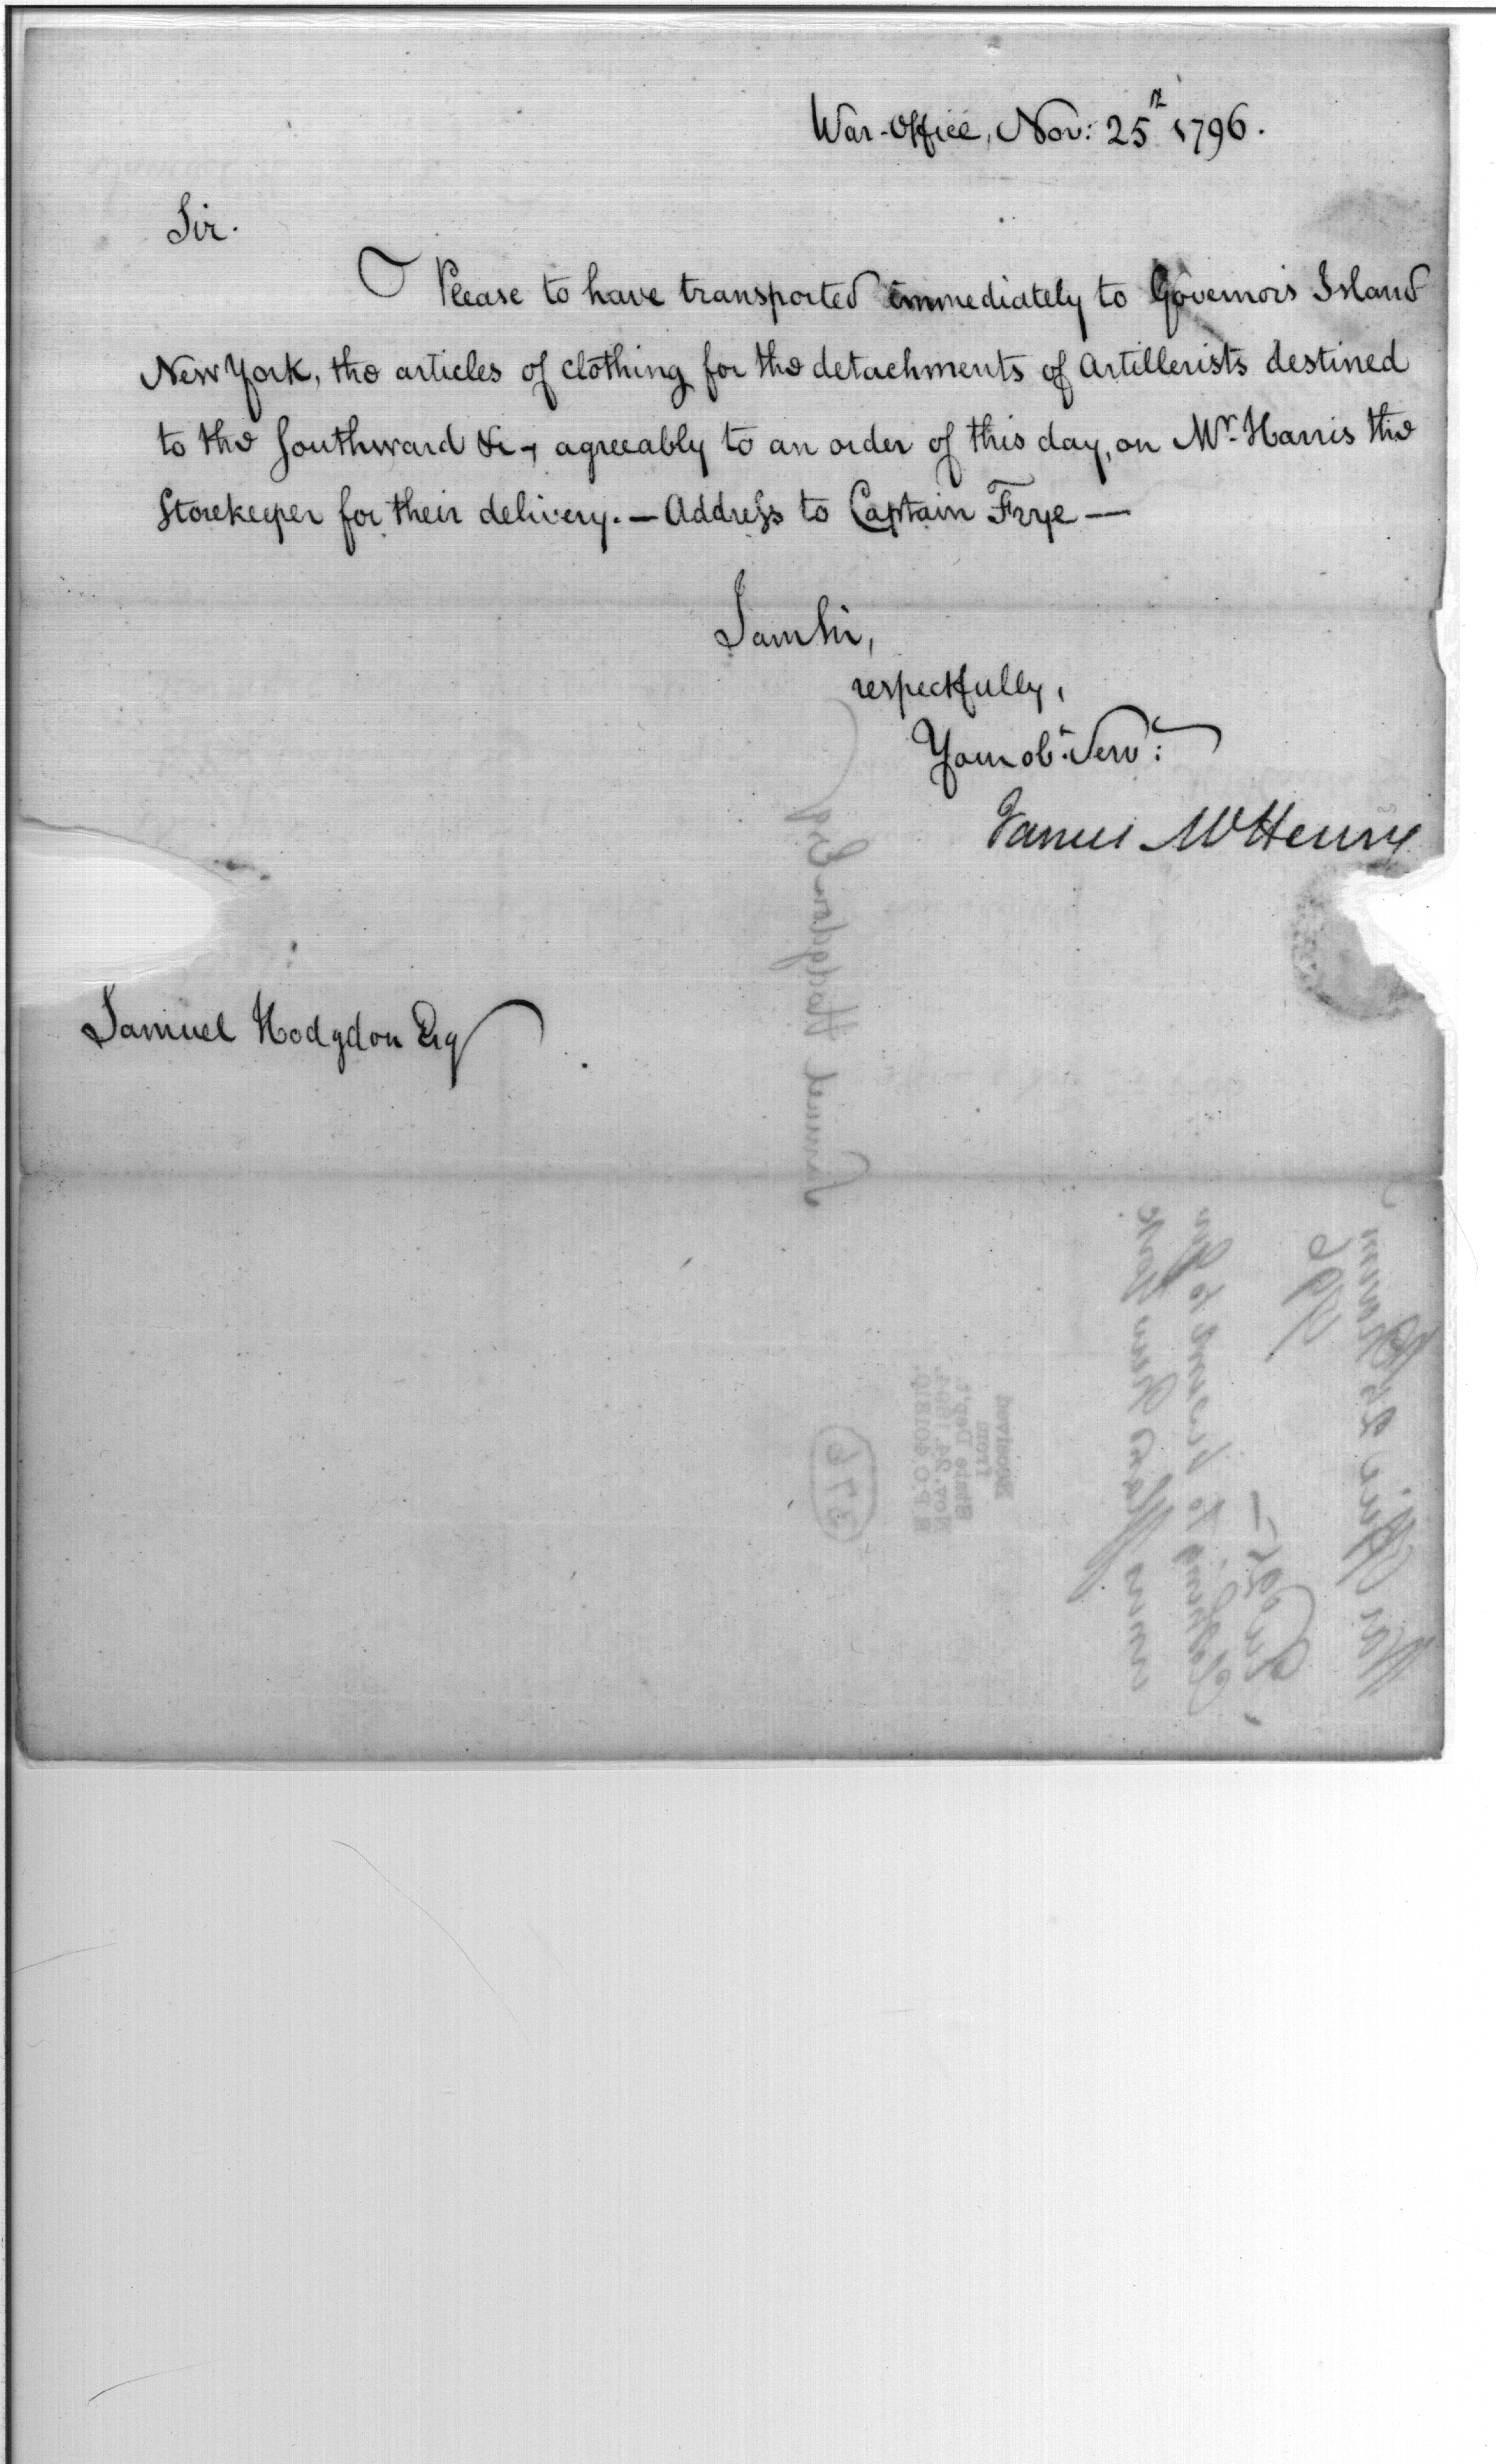 War-Office, Nov: 25th 1796.
Sir.
Please to have transported immediately to Governors Island
New York, the articles of clothing for the detachments of Artillerists destined
to the Southward &c, agreeably to an order of this day, on Mr. Harris the
Storekeeper for their delivery. — Address to Captain Frye —
I am Sir,
respectfully,
Your obt. Serv:
James McHenry
Samuel Hodgdon Esq
Samuel Hodgdon Esq
War Office
Clothing to be sent to
New York
Received
from
State Dep't.
Nov. 24, 1894.
R.P.O. 401810.
376